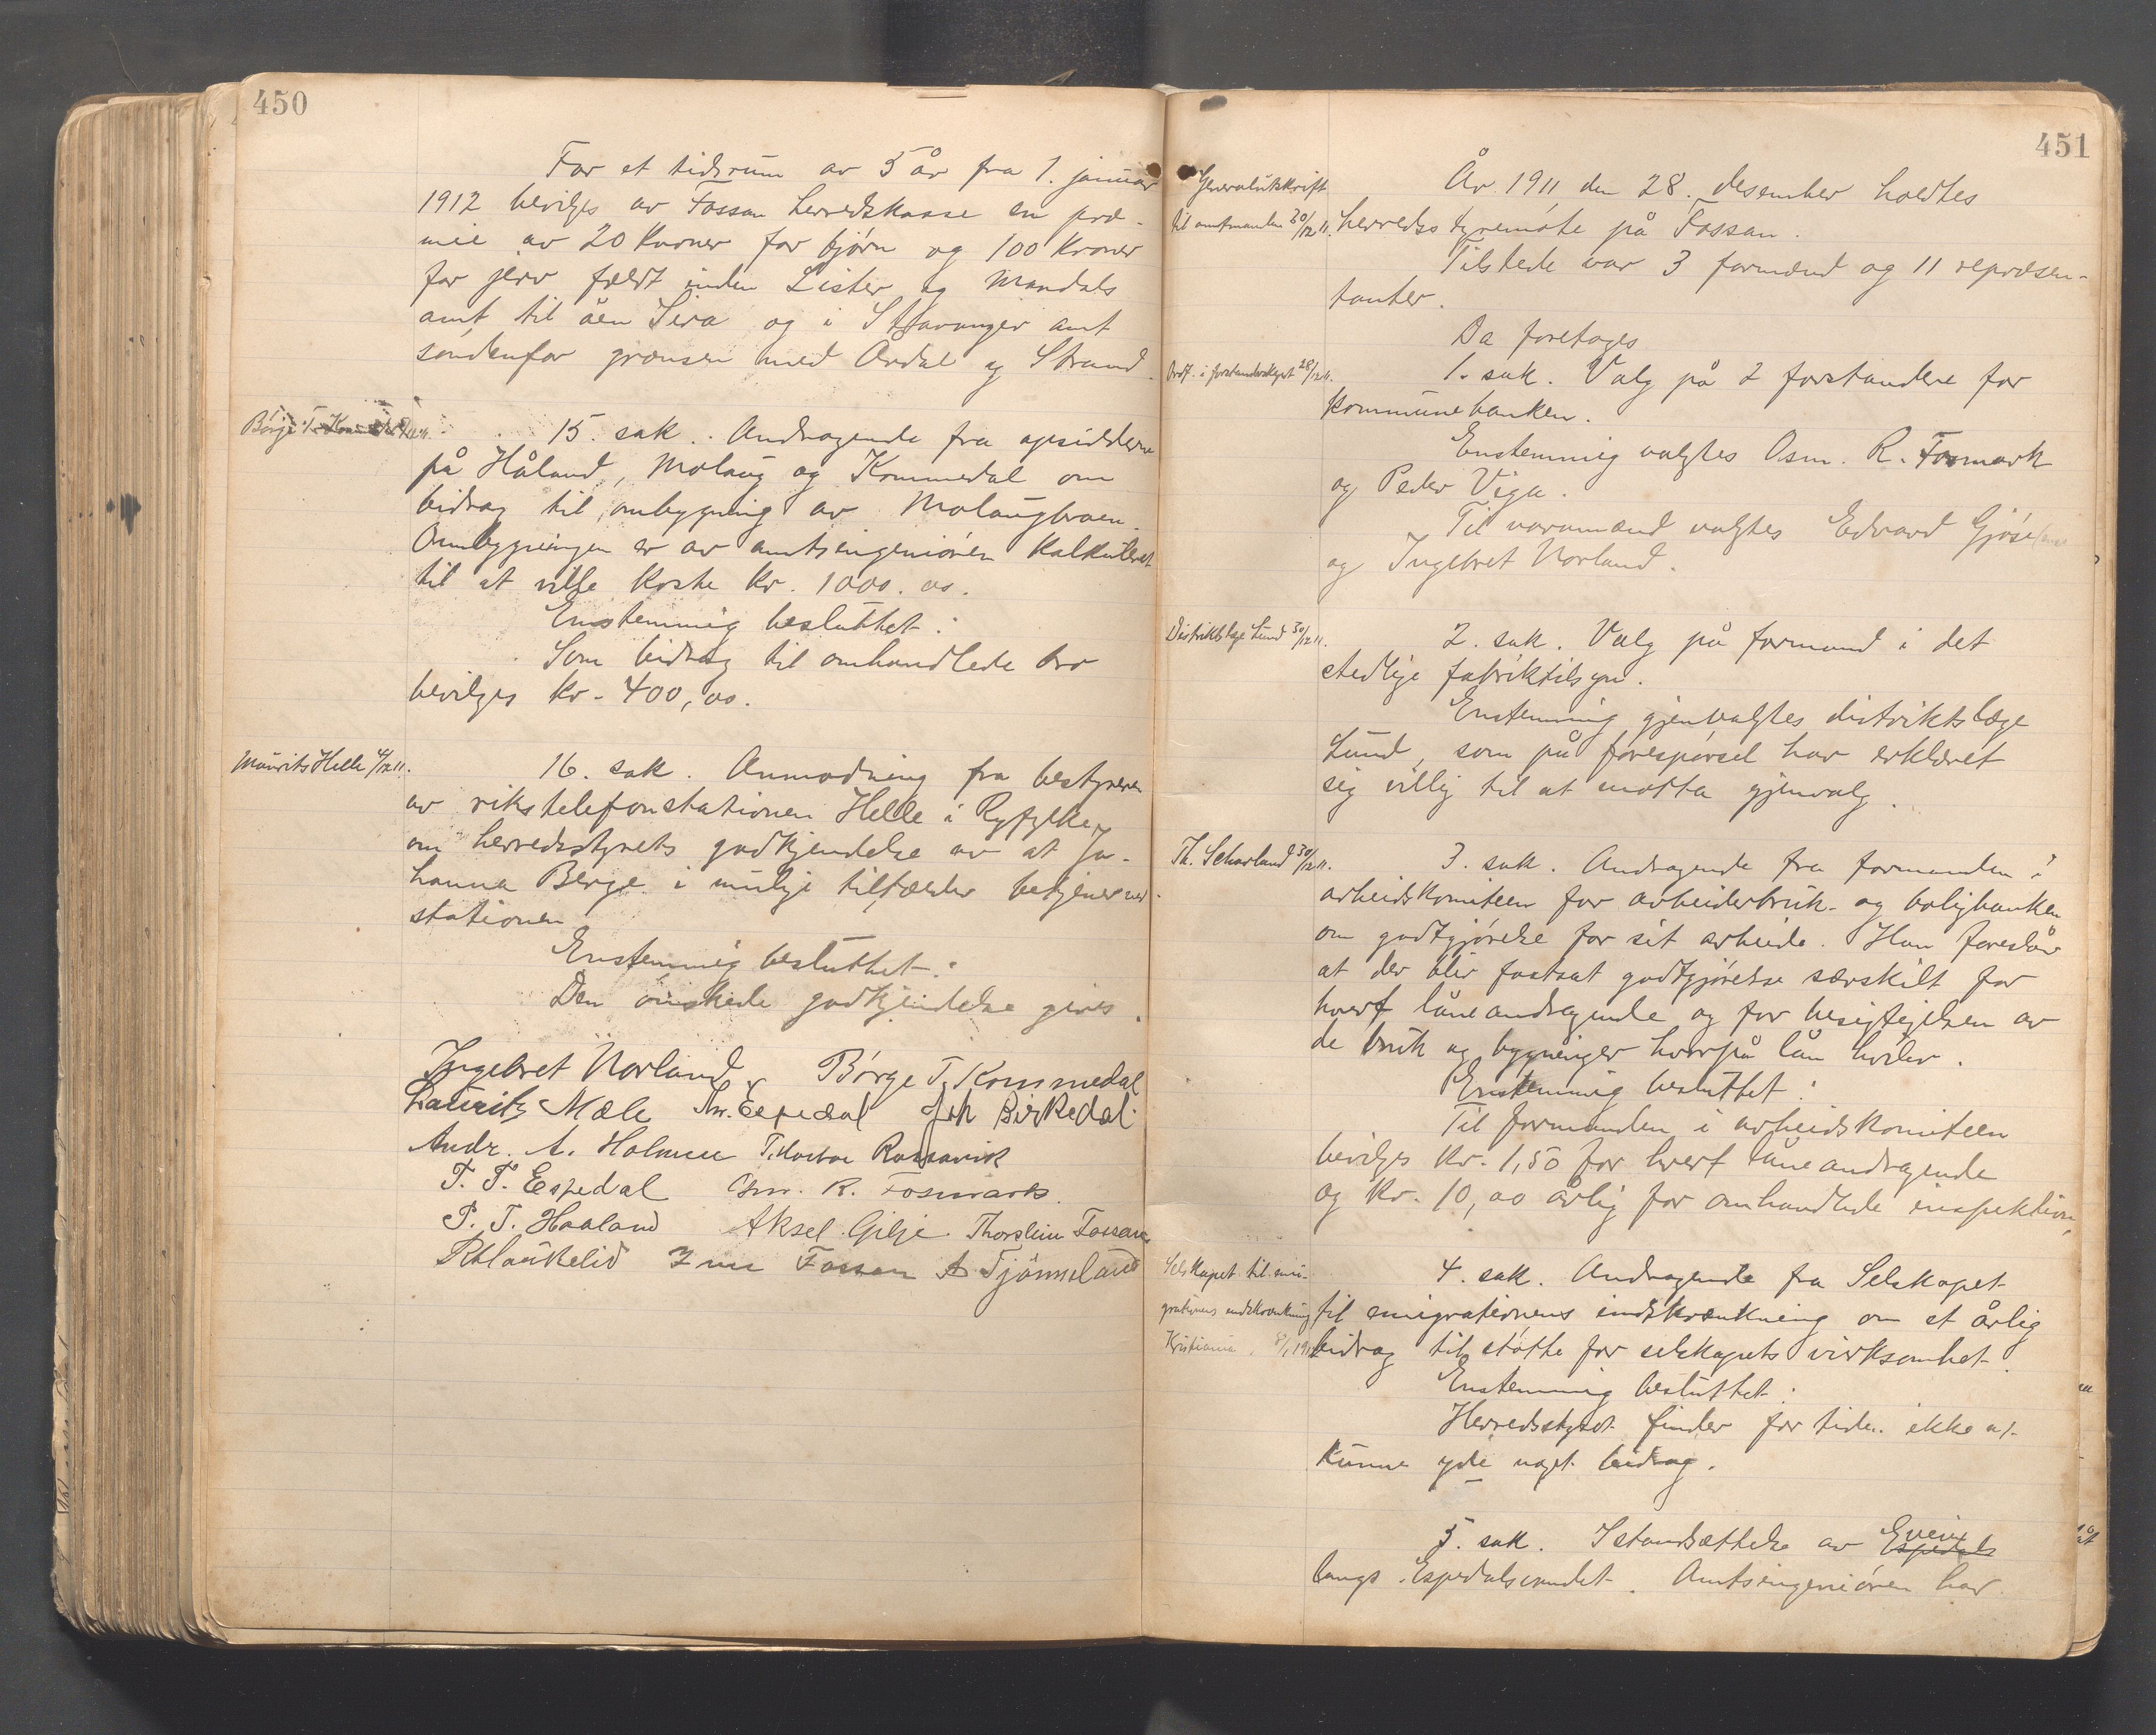 450
For et tidsrum av 5 år fra 1. januar
1912 bevilges av Fossan herredskasse en præ-
mie av 20 kroner for bjørn og 100 kroner
for jerv fældt inden Lister og Mandals
amt til åen Sira og i Stavanger amt
søndenfor grænsen med Årdal og Strand.
Børge T.
15. sak. Andragende fra opsidderne
på Håland, Molaug og Kommedal om
bidrag til ombygning av Molaugbroen.
Ombygningen er av amtsingeniøren kalkuleret
til at ville koste kr. 1000.00.
Enstemmig besluttet:
Som bidrag til omhandlede bro
bevilges kr. 400,00.
Maurits Helle 4/12 11.
16. sak. Anmodning fra bestyreren
av rikstelefonstationen Helle i Ryfylke,
om herredsstyrets godkjendelse av at Jo-
hanna Berge i mulige tilfælder betjener
stationen
Enstemmig besluttet:
Den ønskede godkjendelse gives.
Ingebret Norland Børge T. Kommedal
Lauritz Mæle Th. Espedal Joh Birkedal
Andr. A. Holmen T. Rossavik
T. T. Espedal Osm. R. Fosmark
P. T. Haaland Aksel Gilje Thorstein Fossan
Fossan A Tjømeland
451
Generalutskrift
til amtmanden 30/12 11.
År 1911 den 28. desember holdtes
herredsstyremøte på Fossan.
Tilstede var 3 formænd og 11 repræsen-
tanter.
Da foretages
Ordf. i forstanderskapet 28/12 11.
1. sak. Valg på 2 forstandere for
kommunebanken.
Enstemmig valgtes Osm. R. Fosmark
og Peder Viga.
Til varamænd valgtes Edvard
og Ingebret Norland.
Distriktslæge Lund 30/12 11.
2. sak. Valg på formand i det
stedlige fabriktilsyn.
Enstemmig gjenvalgtes distriktslæge
Lund, som på forespørsel har erklæret
sig villig til at motta gjenvalg.
Th. Scharland 30/12 11.
3. sak. Andragende fra formanden i
arbeidskomiteen for arbeiderbruk- og boligbanken
om godtgjørelse for sit arbeide. Han foreslår
at der blir fastsat godtgjørelse særskilt for
hvert låneandragende og for besigtigelsen av
de bruk og bygninger hvorpå lån hviler.
Enstemmig besluttet:
Til formanden i arbeidskomiteen
bevilges kr. 1,50 for hvert låneandragende
og kr. 10,00 årlig for omhandlede inspektion.
Selskapet til emi-
grationens indskrænkning
Kristiania
4. sak. Andragende fra Selskapet
til emigrationens indskrænkning om et årlig
bidrag til støtte for selskapets virksomhet.
Enstemmig besluttet:
Herredsstyret finder for tiden ikke at
kunne yde noget bidrag.
5. sak. Istandsættelse av veien
Espedals
langs Espedalsvandet. Amtsingeniøren har